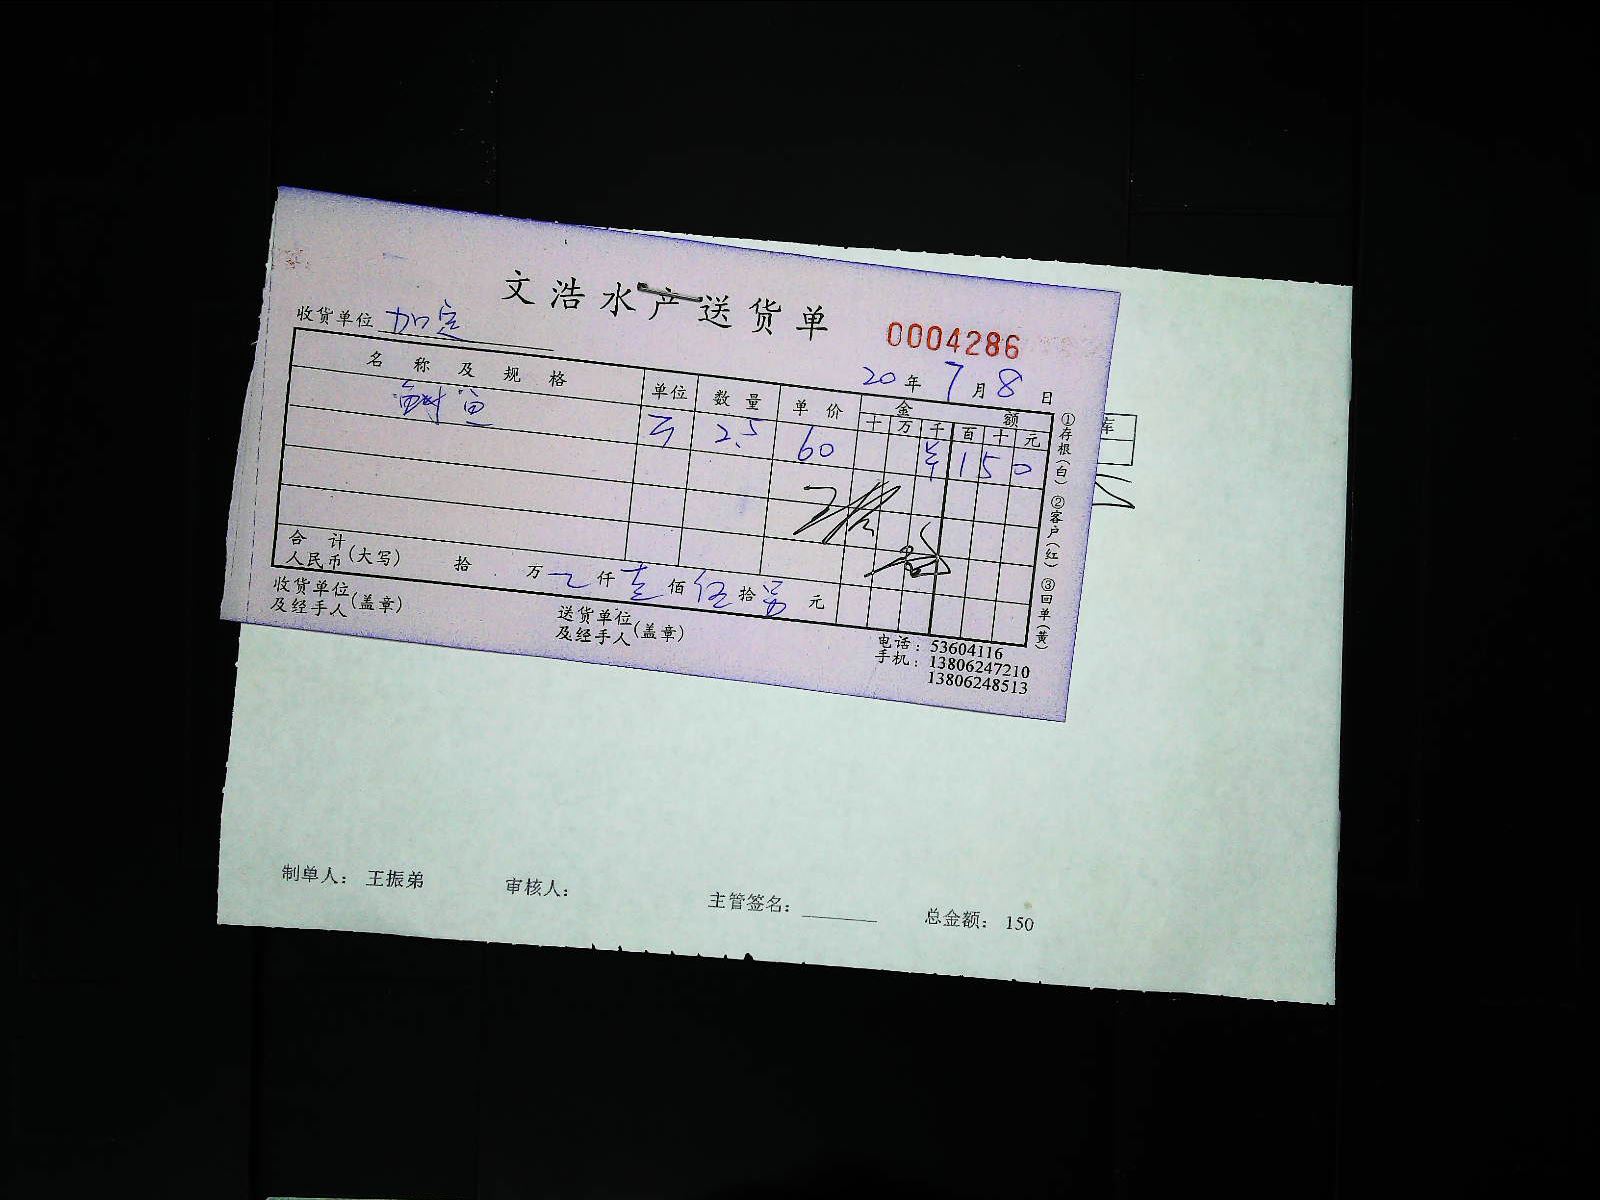 文浩水产送货单
收货单位 加定
0004286
20年7月8日
名称及规格 单位 数量 单价 金额
十 万 千 百 十 元
2.5 60 ¥ 1 5 0
合计
人民币(大写) 拾 万 仟 壹 佰 伍 拾 元
收货单位
及经手人(盖章)
送货单位
及经手人(盖章)
电话：53604116
手机：13806247210
13806248513
①存根(白) ②客户(红) ③回单(黄)
库
制单人： 王振弟 审核人： 主管签名： 总金额： 150